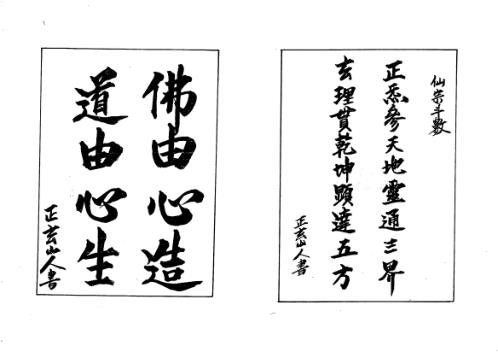 仙宗斗數
正炁參天地靈通三界
玄理貫乾坤顯達五方
正玄山人書
佛由心造
道由心生
正玄山人書